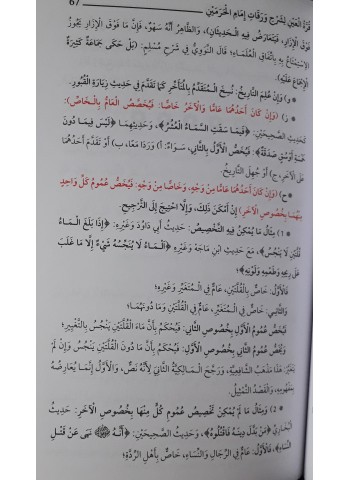 قُرَّةُ العَيْنِ لِشَرْحِ وَرَقَاتِ إِمَامِ الحَرَمَيْنِ 67
فَوْقَ الْإِزَارِ، فَيَتَعَارَضُ فِيهِ الْحَدِيثَانِ)، وَالظَّاهِرُ أَنَّهُ سَهْوٌ، فَإِنَّ مَا فَوْقَ الْإِزَارِ يَجُوزُ
الِاسْتِمْتَاعُ بِهِ بِاتِّفَاقِ الْعُلَمَاءِ؛ قَالَ النَّوَوِيُّ فِي شَرْحِ مُسْلِمٍ: (بَلْ حَكَى جَمَاعَةٌ كَثِيرَةٌ
الْإِجْمَاعَ عَلَيْهِ).
* د) وَإِنْ عُلِمَ التَّارِيخُ: نُسِخَ الْمُتَقَدِّمُ بِالْمُتَأَخِّرِ كَمَا تَقَدَّمَ فِي حَدِيثِ زِيَارَةِ الْقُبُورِ.
* ز) (وَإِنْ كَانَ أَحَدُهُمَا عَامًّا وَالْآخَرُ خَاصًّا: فَيُخَصَّصُ الْعَامُّ بِالْخَاصِّ):
كَحَدِيثِ الصَّحِيحَيْنِ: ﴿فِيمَا سَقَتِ السَّمَاءُ الْعُشْرُ﴾، وَحَدِيثِهِمَا ﴿لَيْسَ فِيمَا دُونَ
خَمْسَةِ أَوْسُقٍ صَدَقَةٌ﴾؛ فَيُخَصُّ الْأَوَّلُ بِالثَّانِي، سَوَاءٌ: أ) وَرَدَا مَعًا، ب) أَوْ تَقَدَّمَ أَحَدُهُمَا
عَلَى الْآخَرِ، ج) أَوْ جُهِلَ التَّارِيخُ.
* ح) (وَإِنْ كَانَ أَحَدُهُمَا عَامًّا مِنْ وَجْهٍ، وَخَاصًّا مِنْ وَجْهٍ: فَيُخَصُّ عُمُومُ كُلِّ وَاحِدٍ
مِنْهُمَا بِخُصُوصِ الْآخَرِ) إِنْ أَمْكَنَ ذَلِكَ، وَإِلَّا احْتِيجَ إِلَى التَّرْجِيحِ.
* 1) مِثَالُ مَا يُمْكِنُ فِيهِ التَّخْصِيصُ: حَدِيثُ أَبِي دَاوُدَ وَغَيْرِهِ: ﴿إِذَا بَلَغَ الْمَاءُ
قُلَّتَيْنِ لَا يَنْجُسُ﴾، مَعَ حَدِيثِ ابْنِ مَاجَهْ وَغَيْرِهِ ﴿الْمَاءُ لَا يُنَجِّسُهُ شَيْءٌ إِلَّا مَا غَلَبَ
عَلَى رِيحِهِ وَطَعْمِهِ وَلَوْنِهِ﴾:
فَالْأَوَّلُ: خَاصٌّ فِي الْقُلَّتَيْنِ، عَامٌّ فِي الْمُتَغَيِّرِ وَغَيْرِهِ؛
وَالثَّانِي: خَاصٌّ فِي الْمُتَغَيِّرِ، عَامٌّ فِي الْقُلَّتَيْنِ وَمَا دُونَهُمَا؛
فَيُخَصُّ عُمُومُ الْأَوَّلِ بِخُصُوصِ الثَّانِي: فَيُحْكَمُ بِأَنَّ مَاءَ الْقُلَّتَيْنِ يَنْجُسُ بِالتَّغْيِيرِ؛
وَيُخَصُّ عُمُومُ الثَّانِي بِخُصُوصِ الْأَوَّلِ: فَيُحْكَمُ بِأَنَّ مَا دُونَ الْقُلَّتَيْنِ يَنْجُسُ وَإِنْ لَمْ
يَتَغَيَّرْ؛ هَذَا مَذْهَبُ الشَّافِعِيَّةِ، وَرَجَّحَ الْمَالِكِيَّةُ الثَّانِي لِأَنَّهُ نَصٌّ، وَالْأَوَّلُ إِنَّمَا يُعَارِضُهُ
بِمَفْهُومِهِ، وَالْقَصْدُ التَّمْثِيلُ.
* 2) وَمِثَالُ مَا لَمْ يُمْكِنْ تَخْصِيصُ عُمُومِ كُلٍّ مِنْهَا بِخُصُوصِ الْآخَرِ: حَدِيثُ
الْبُخَارِيِّ ﴿مَنْ بَدَّلَ دِينَهُ فَاقْتُلُوهُ﴾، وَحَدِيثُ الصَّحِيحَيْنِ: ﴿أَنَّهُ ﷺ نَهَى عَنْ قَتْلِ
النِّسَاءِ﴾، فَالْأَوَّلُ: عَامٌّ فِي الرِّجَالِ وَالنِّسَاءِ، خَاصٌّ بِأَهْلِ الرِّدَّةِ؛